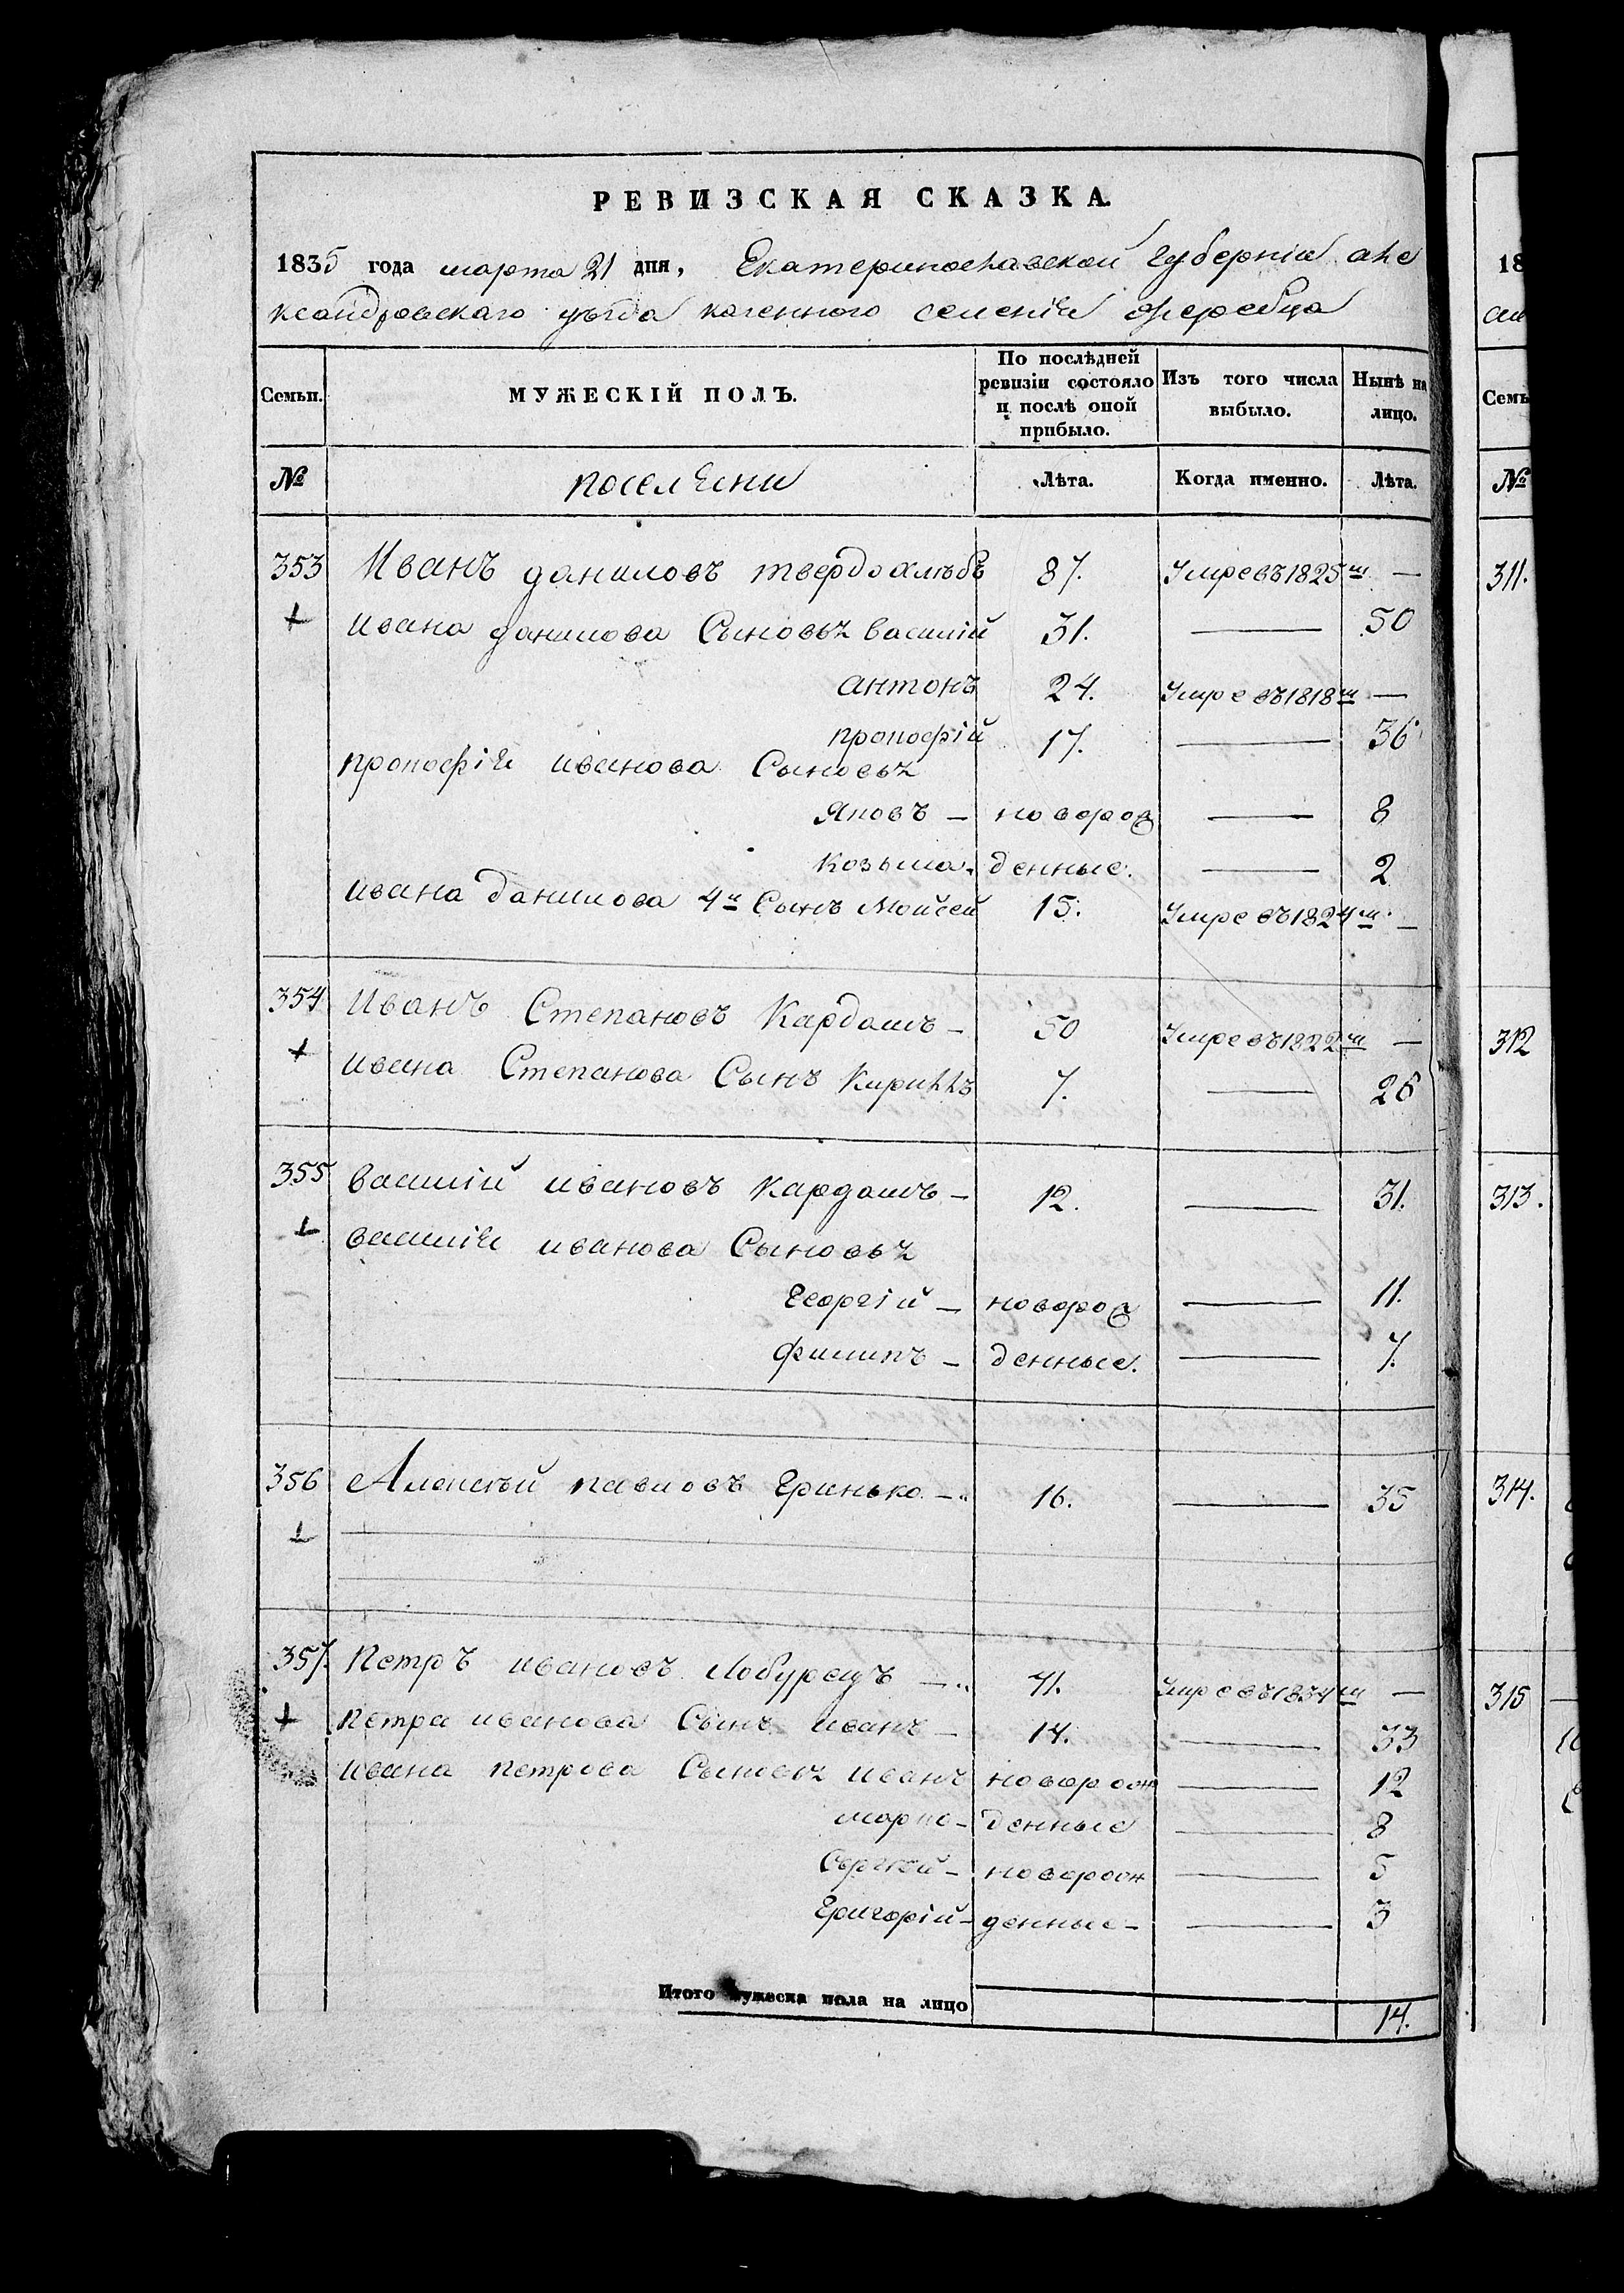 РЕВИЗСКАЯ СКАЗКА.
1835 года марта 21 дня, Екатеринославской губерніи але
ксандровскаго уѣзда казенного селенія жеребца
Семьи. МУЖЕСКІЙ ПОЛЪ. По послѣдней ревизіи состояло и послѣ оной прибыло. Изъ того числа выбыло. Нынѣ на лицо.
№ поселяни Лѣта. Когда именно. Лѣта.
353 Иванъ даниловъ твердохлѣбъ 87. Умре въ 1825м —
+ ивана данилова Сыновья василій 31. — 50
антонъ 24. Умре въ 1818м —
прокофій 17. — 36
прокофія иванова Сыновья
яковъ — новорож — 8
козьма. денные. — 2
ивана данилова 4й Сынъ Мойсей 15. Умре въ 1824м. —
354 Иванъ Степановъ Кардашъ — 50 Умре въ 1822м —
+ ивана Степанова Сынъ Кириллъ 7. — 26
355 василій ивановъ кардашъ — 12. — 31.
+ василія иванова Сыновья
Георгій — новорож — 11.
филипъ — денные. — 7.
356 Алексѣй павловъ Гринько — 16. — 35
+
357. Петръ ивановъ Лобурецъ — 71. Умре въ 1834м —
+ петра иванова Сынъ иванъ — 14. — 33
ивана петрова Сыновья иванъ новорож — 12
марко — денные — 8
Сергѣй — новорож — 5
Григорій — денные — — 3
Итого мужеска пола на лицо 14.
18
Семь
№
311.
312
313.
314.
315